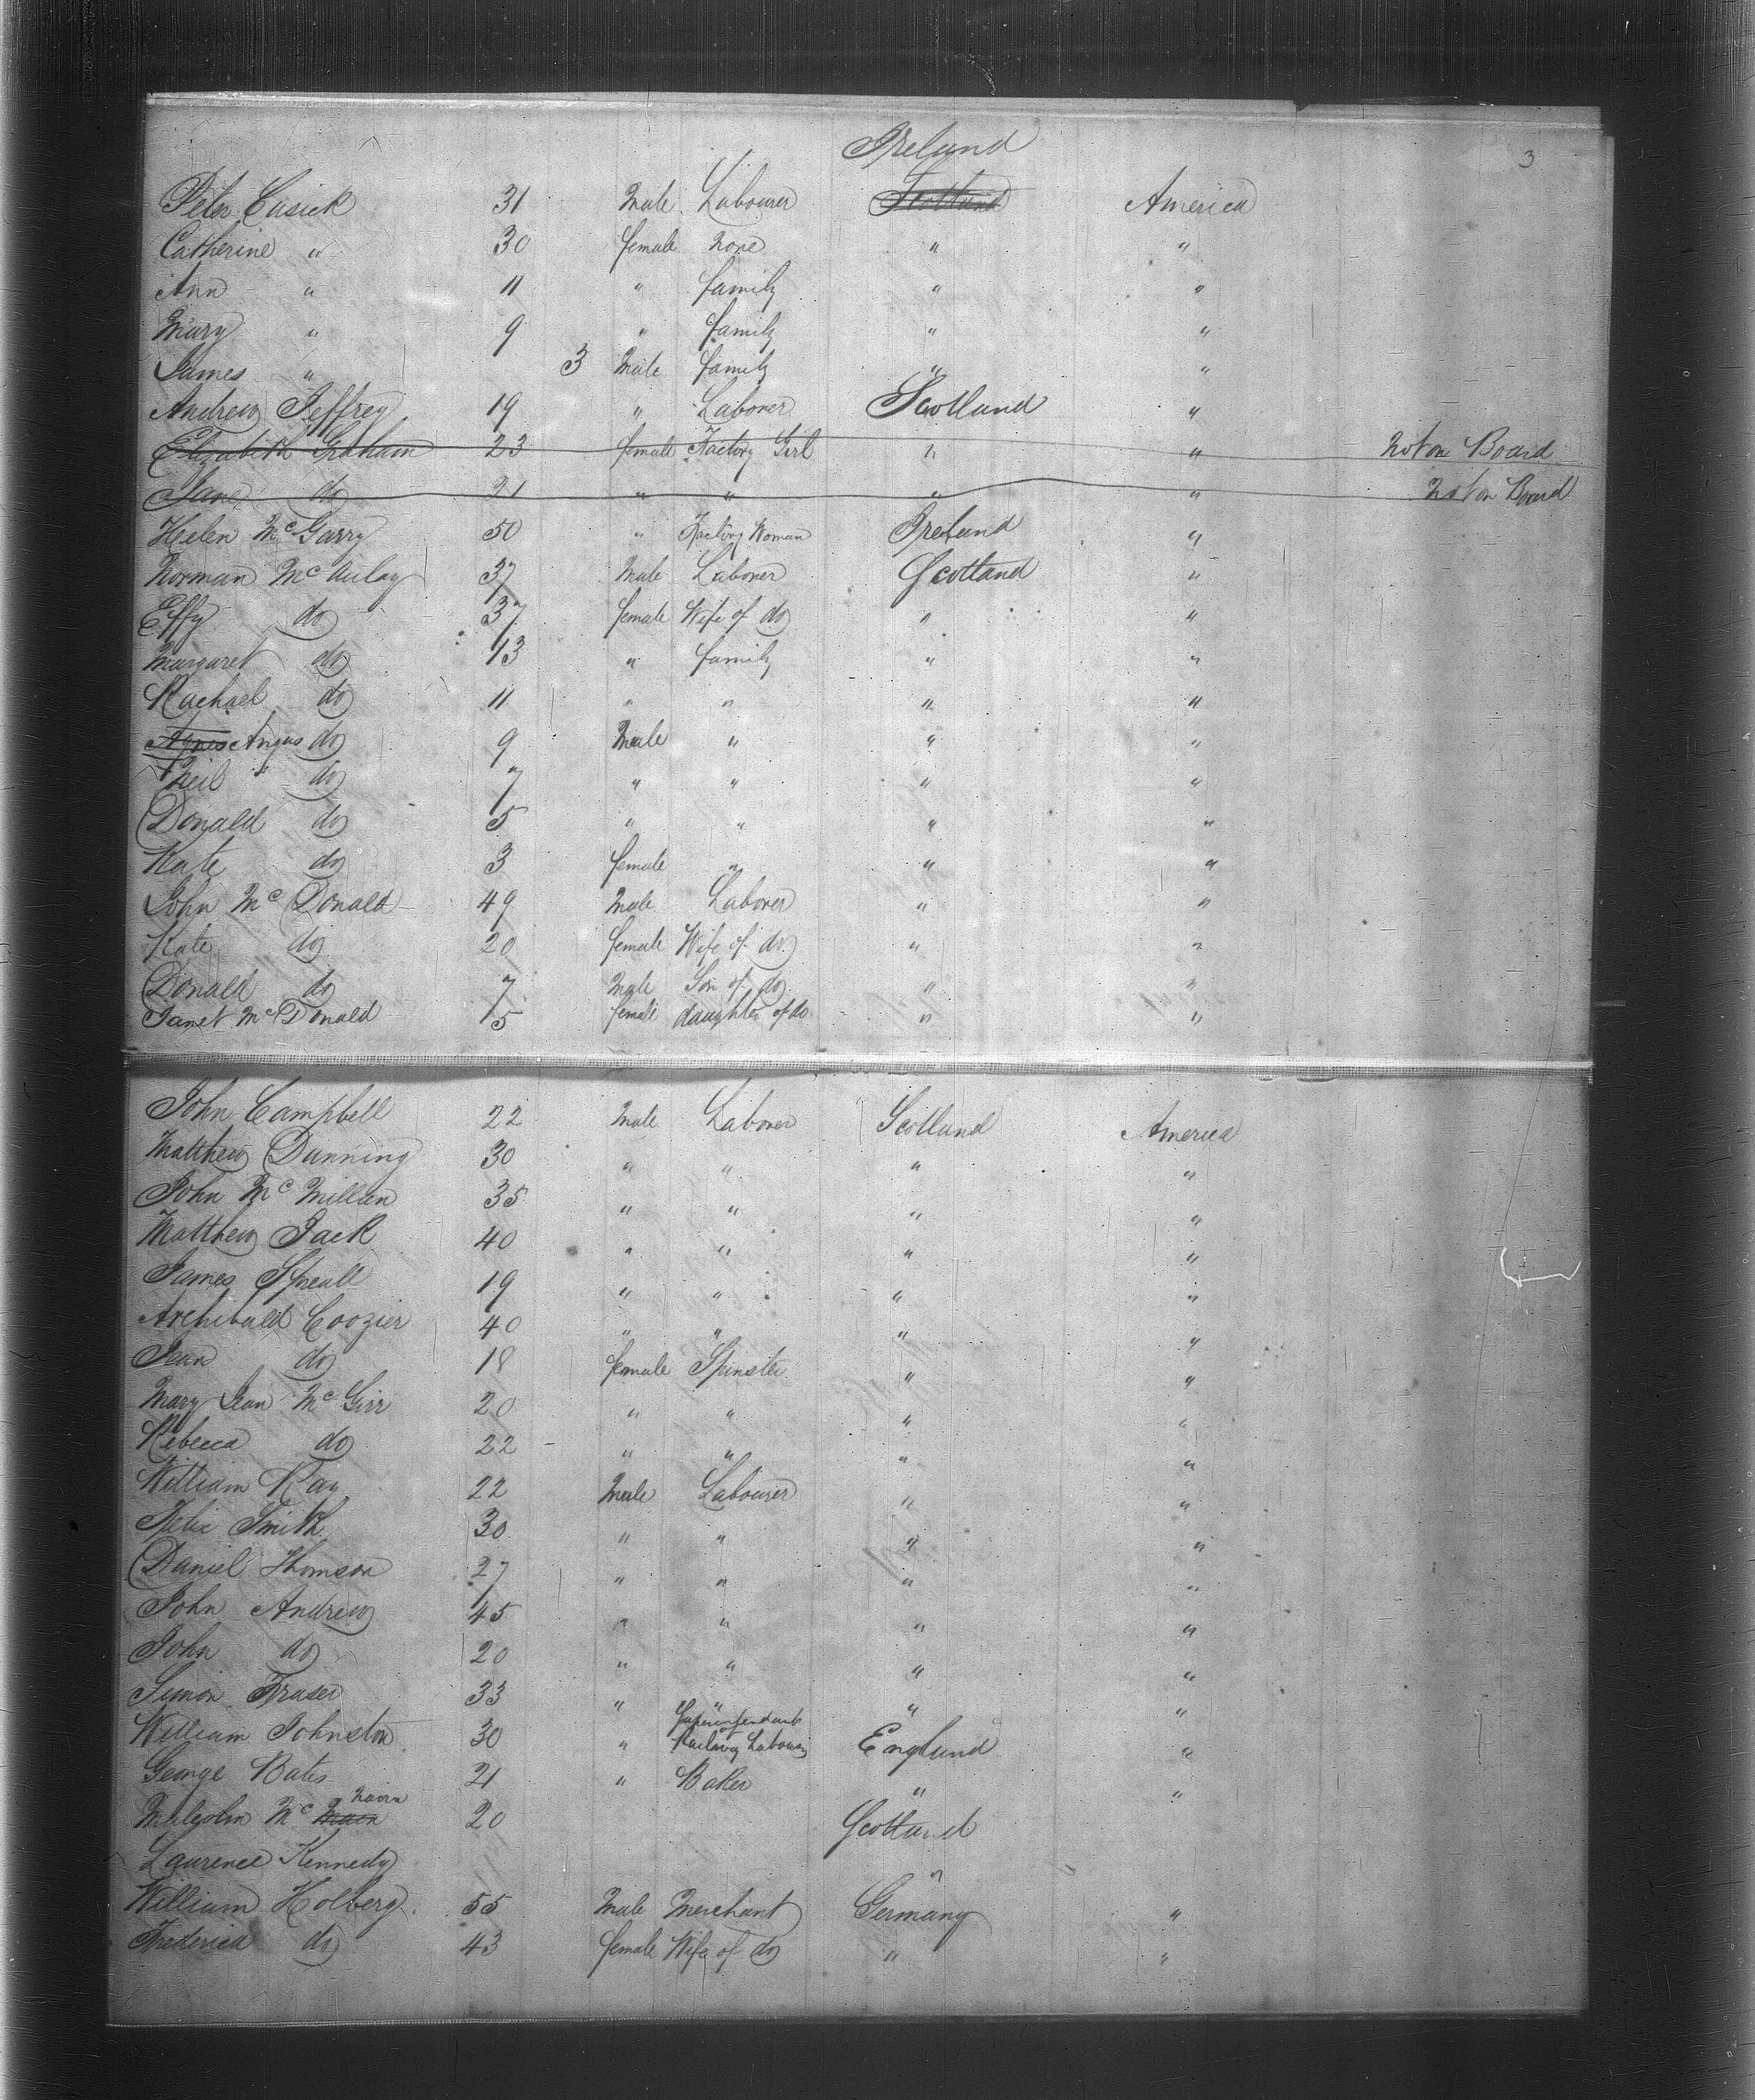 Ireland
3
Peter Cusick 31 Male Labourer Scotland America
Catherine " 30 female None " "
Ann " 11 " family " "
Mary " 9 " family " "
James " 3 Male family " "
Andrew Jeffrey 19 " Laborer Scotland "
Elizabeth Graham 23 female Factory Girl " " Not on Board
Jane do 21 " " " " Not on Board
Helen McGarry 50 " Factory Woman Ireland "
Norman McAulay 37 Male Laborer Scotland "
Effy do 37 female Wife of do " "
Margaret do 13 " family " "
Rachael do 11 " " " "
Agnes Angus do 9 Male " " "
Neil do 7 " " " "
Donald do 5 " " " "
Kate do 3 female " " "
John Mc Donald 49 Male Laborer " "
Kate do 20 female Wife of do " "
Donald do 7 Male Son of do " "
Janet McDonald 5 female daughter of do " "
John Campbell 22 Male Laborer Scotland America
Matthew Dunning 30 " " " "
John Mc Millan 35 " " " "
Matthew Jack 40 " " " "
James Spreull 19 " " " "
Archibald Coozier 40 " " " "
Jean do 18 female Spinster " "
Mary Jean McGirr 20 " " " "
Rebecca do 22 " " " "
William Ray 22 Male Labourer " "
Felix Smith 30 " " " "
Daniel Thomson 27 " " " "
John Andrew 45 " " " "
John do 20 " " " "
Simon Fraser 33 " " " "
Superintendant
William Johnston 30 " Railway Labour England "
George Bates 21 " Baker " "
Nairn
Malcolm Mc 20 Scotland
Laurence Kennedy "
William Holberg 55 Male Merchant Germany "
Frederica do 43 female Wife of do " "